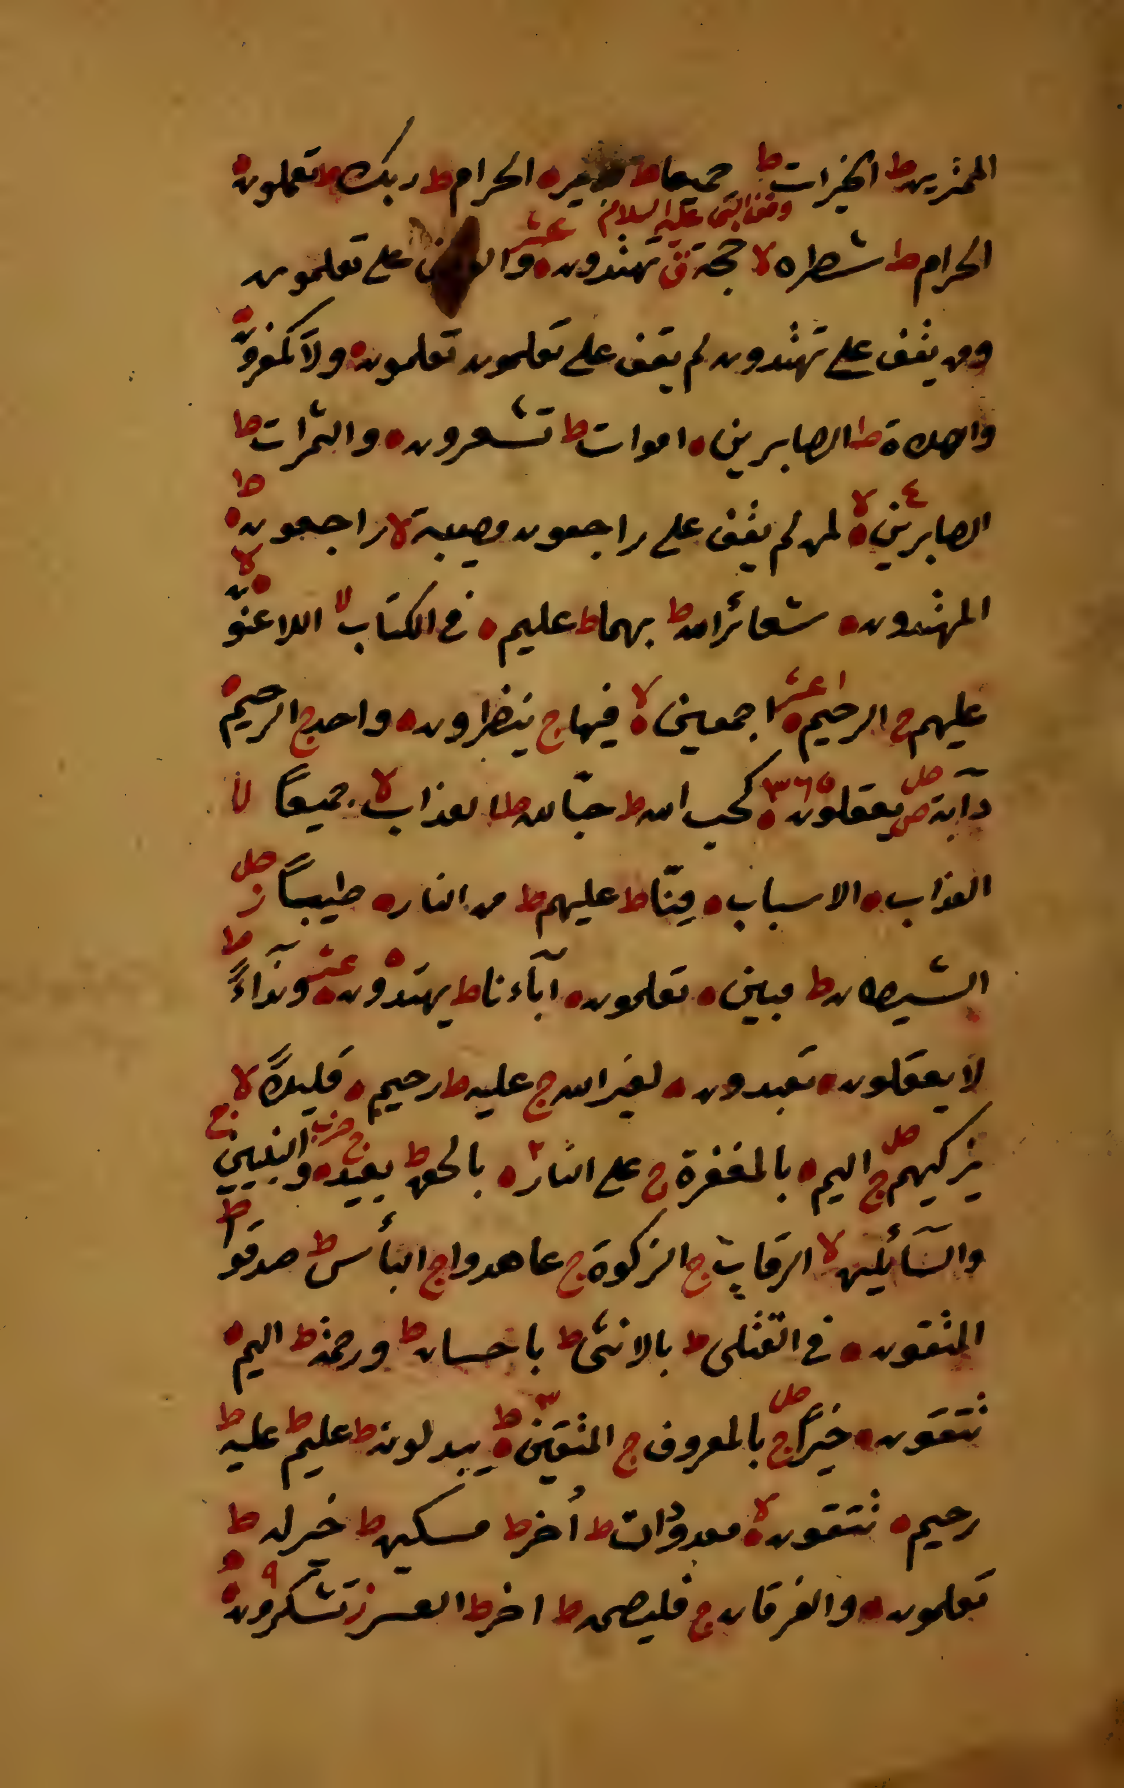 الممترين ه ط الخيرات ط جميعا ط قدير ه الحرام ط ربك ط تعملون ه
وقف النبى عليه السلام
الحرام ط شطره لا حجة ق تهتدون ه عشر على تعلمون
ومن يقف على تهتدون لم يقف على تعلمون تعلمون ه ولا تكفرون ه
واحدة ط الصابرين ه اموات ط تشعرون ه والثمرات ط
الصابرين ه لا ٤ لمن لم يقف على راجعون مصيبة لا راجعون ه ط
المهتدون ه شعائر الله ط بهما ط عليم ه فى الكتاب لا اللاعنون ه لا
عليهم ج الرحيم ه عشر اجمعين ه لا فيها ج ينظرون ه واحد ج الرحيم ه
دآبة ص يعقلون ه كحب الله ط حبّا لله ط العذاب لا جميعاً لا
العذاب ه الاسباب ه منّا ط عليهم ط من النار ه طيباً ز صل
الشيطان ط مبين ه تعلمون ه آبآءنا ط يهتدون ه عشر وندآءً ط
لا يعقلون ه تعبدون ه لغير الله ج عليه ط رحيم ه قليلاً لا
يزكيهم ج صل اليم ه بالمغفرة ج على النار ه بالحق ط بعيد ه حزب والنبيين ج
والسآئلين لا الرقاب ج الزكوة ج عاهدوا ج البأس ط صدقوا ط
المتقون ه فى القتلى ط بالانثى ط باحسان ط ورحمة ط اليم ه
تتقون ه خيراً ج صل بالمعروف ج المتقين ه ط يبدلونه ط عليم ط عليه ط
رحيم ه تتقون ه لا معدودات ط اُخر ط مسكين ط خير له ط
تعلمون ه والفرقان ج فليصمه ط اخر ط العسر ز تشكرون ه ٩